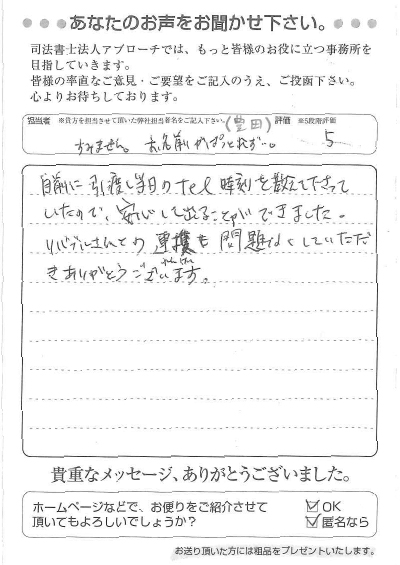 ●●●あなたのお声をお聞かせ下さい。●●●
司法書士法人アプローチでは、もっと皆様のお役に立つ事務所を
目指していきます。
皆様の率直なご意見・ご要望をご記入のうえ、ご投函下さい。
心よりお待ちしております。
担当者 ※貴方を担当させて頂いた弊社担当者名をご記入下さい。 (豊田) 評価 ※5段階評価
すみません。お名前がぱっとわず…。 5
事前に引渡し当日のTel時刻を教えて下さって
いたので、安心して出ることができました。
リバブルさんとの連携も問題なくしていただ
れんけい
きありがとうございます。
貴重なメッセージ、ありがとうございました。
ホームページなどで、お便りをご紹介させて
頂いてもよろしいでしょうか?
☑OK
☑匿名なら
お送り頂いた方には粗品をプレゼントいたします。